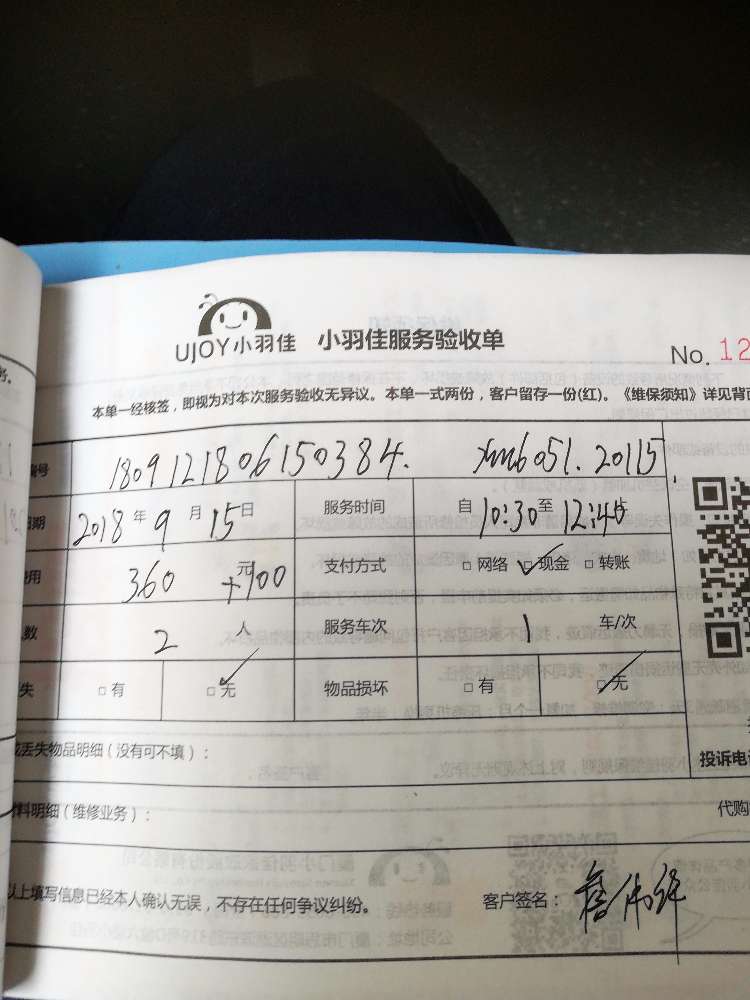 UJOY小羽佳 小羽佳服务验收单
No. 12
本单一经核签，即视为对本次服务验收无异议。本单一式两份，客户留存一份(红)。《维保须知》详见背面
编号 1809121806150384. xm6051.20115
日期 2018年9月15日 服务时间 自10:30至12:40
费用 360元+100 支付方式 □网络 □现金 □转账
人数 2人 服务车次 1 车/次
失 □有 □无 物品损坏 □有 □无
或丢失物品明细（没有可不填）：
投诉电话
材料明细（维修业务）：
代购
以上填写信息已经本人确认无误，不存在任何争议纠纷。 客户签名：